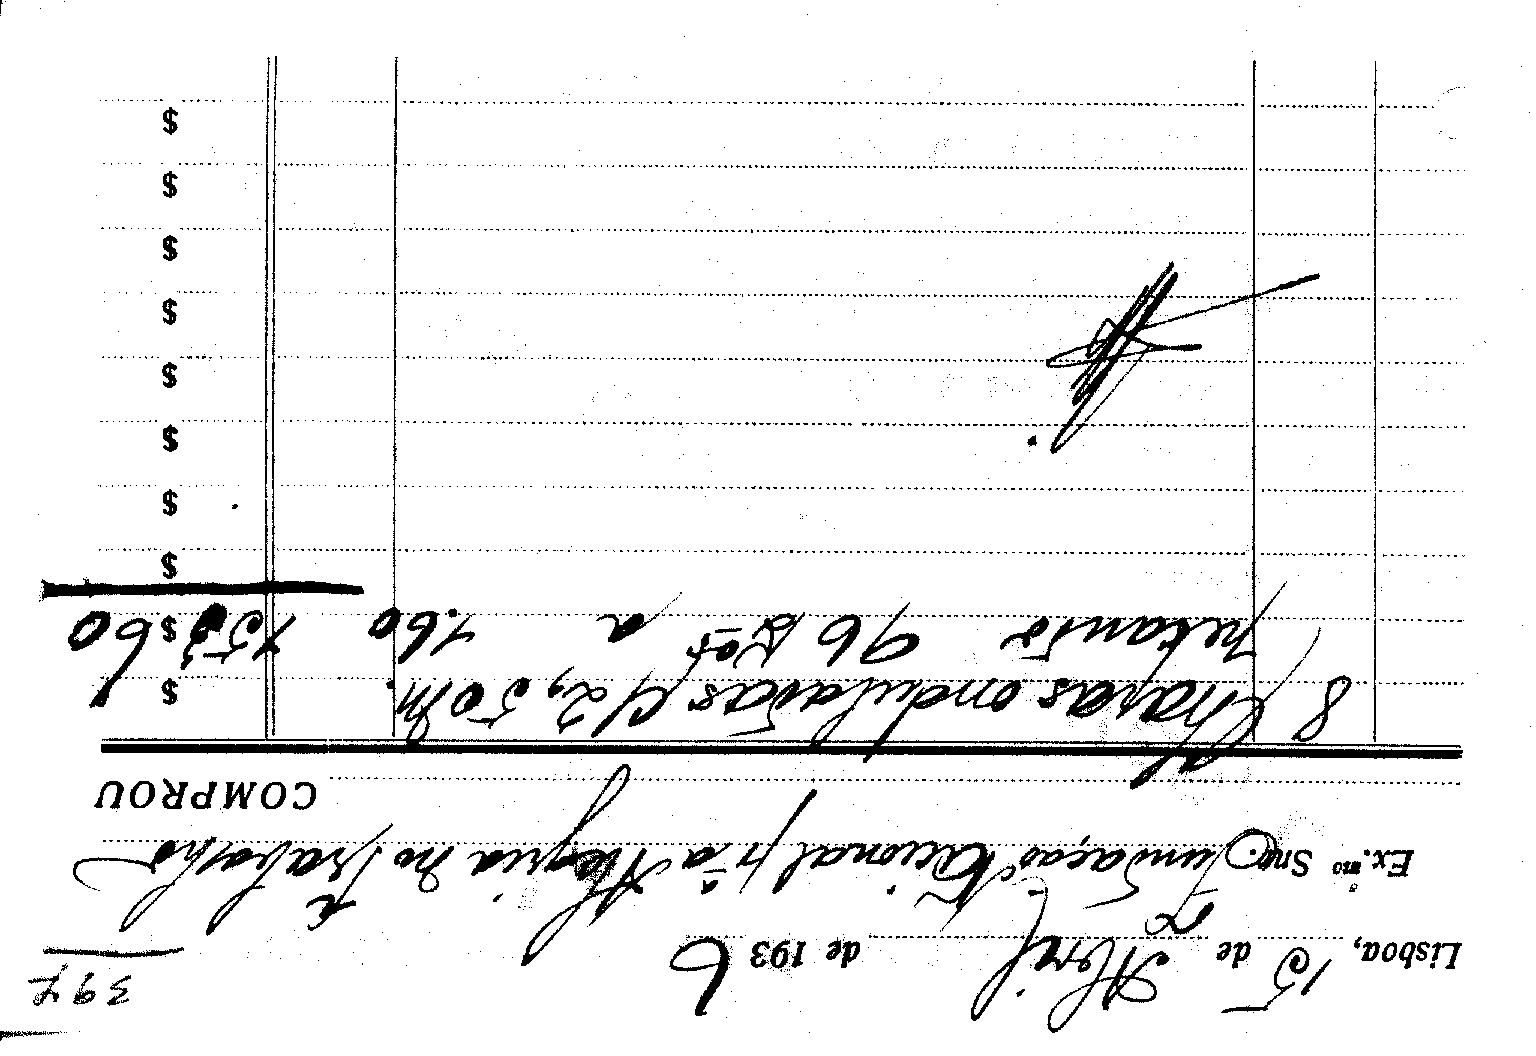 397
Lisboa, 15 de Abril de 1936
Ex.mo Snr. Fundação Nacional p.ª a Alegria no Trabalho
COMPROU
8 Chapas onduladas c/ 2,50 m.
pesando 96 Kos a 1.60 153$60
$
$
$
$
$
$
$
$